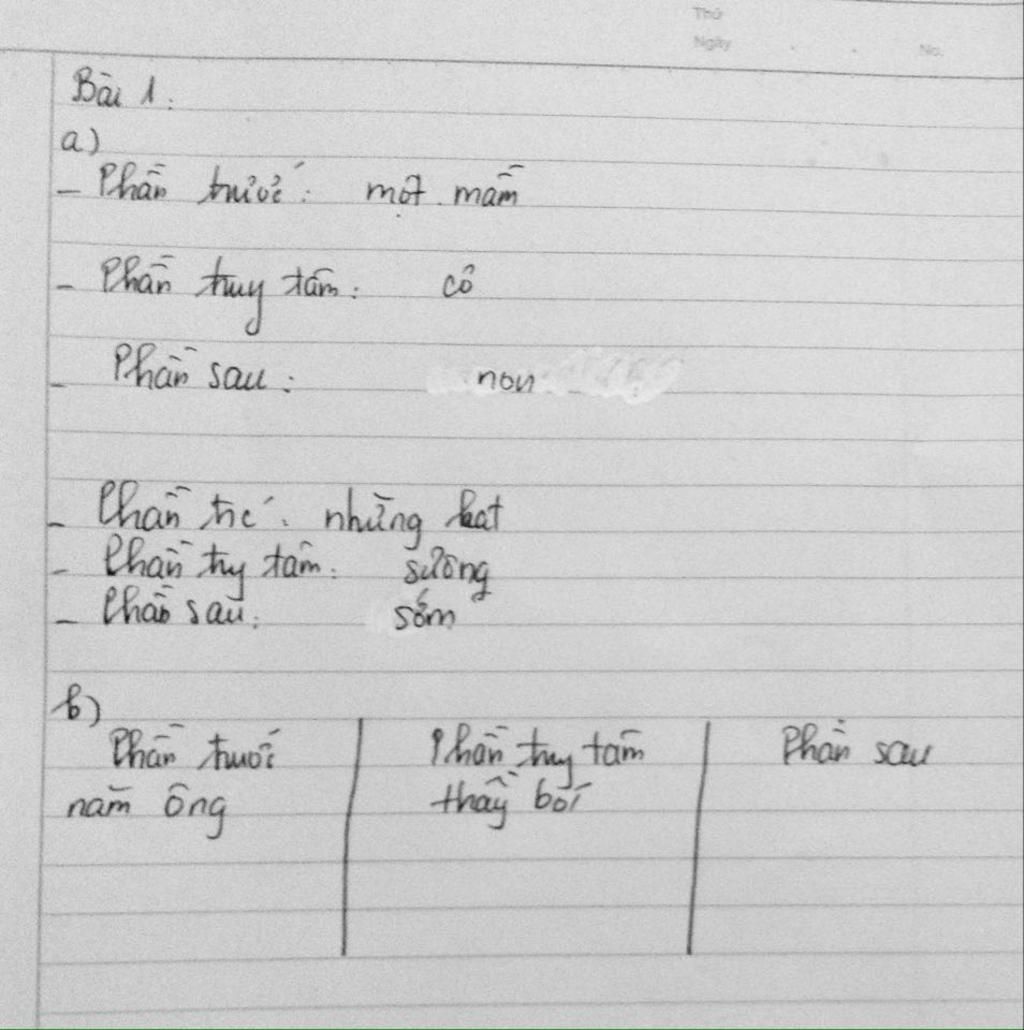 Thứ
Ngày No.
Bài 1:
a)
- Phần trước: một mầm
- Phần truy tâm: cỏ
- Phần sau: non
- Phần trc: những hạt
- Phần ty tâm: sương
- Phần sau: sớm
b)
Phần trước Phần truy tâm Phần sau
năm ông thầy bói